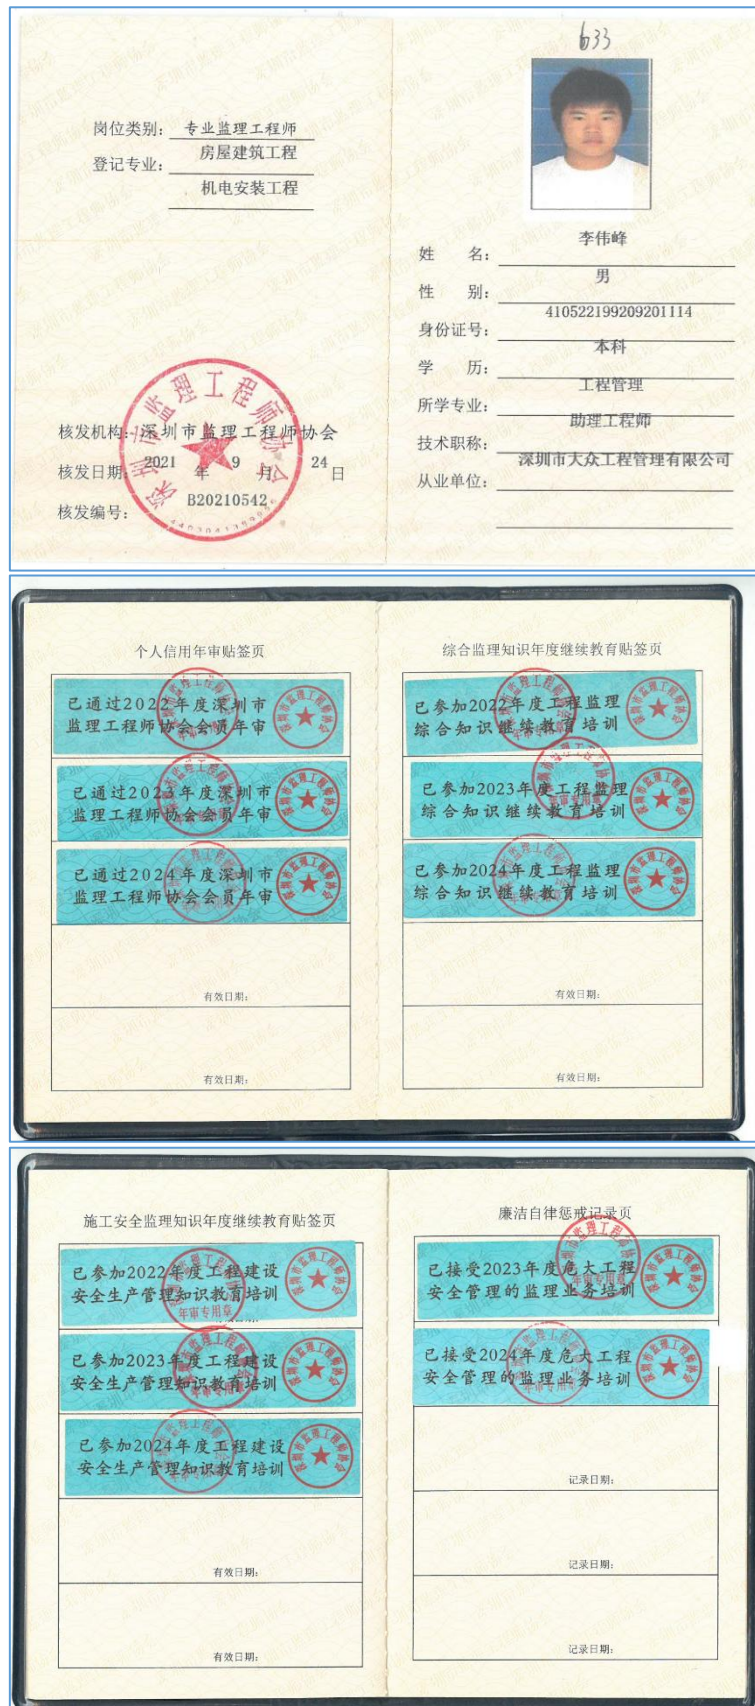 岗位类别：专业监理工程师
登记专业：房屋建筑工程
机电安装工程
核发机构：深圳市监理工程师协会
核发日期：2021 年 9 月 24 日
核发编号：B20210542
深圳市监理工程师协会
633
姓 名：李伟峰
性 别：男
身份证号：410522199209201114
学 历：本科
所学专业：工程管理
技术职称：助理工程师
从业单位：深圳市大众工程管理有限公司
个人信用年审贴签页
已通过2022年度深圳市
监理工程师协会会员年审
已通过2023年度深圳市
监理工程师协会会员年审
已通过2024年度深圳市
监理工程师协会会员年审
有效日期：
有效日期：
综合监理知识年度继续教育贴签页
已参加2022年度工程监理
综合知识继续教育培训
已参加2023年度工程监理
综合知识继续教育培训
已参加2024年度工程监理
综合知识继续教育培训
有效日期：
有效日期：
施工安全监理知识年度继续教育贴签页
已参加2022年度工程建设
安全生产管理知识教育培训
已参加2023年度工程建设
安全生产管理知识教育培训
已参加2024年度工程建设
安全生产管理知识教育培训
有效日期：
有效日期：
廉洁自律惩戒记录页
已接受2023年度危大工程
安全管理的监理业务培训
已接受2024年度危大工程
安全管理的监理业务培训
记录日期：
记录日期：
记录日期：